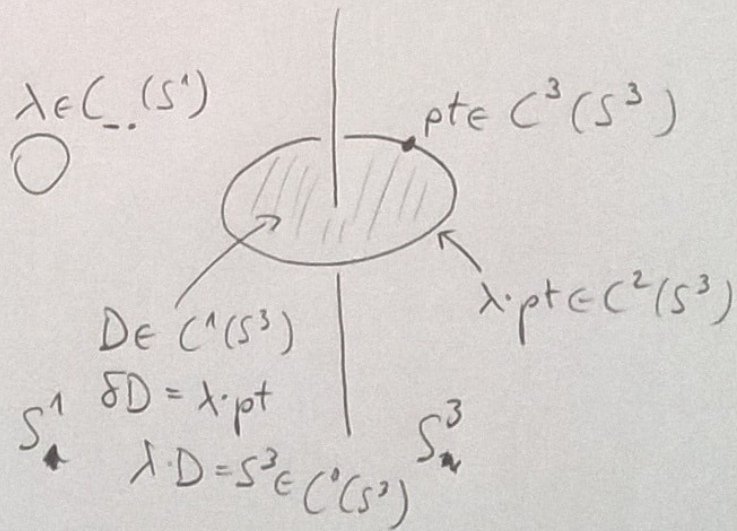 λ∈C_..(S¹)
pt∈ C³(S³)
λ·pt∈C²(S³)
D∈ C¹(S³)
δD = λ·pt
λ·D=S³∈C⁰(S³)
S¹
S³